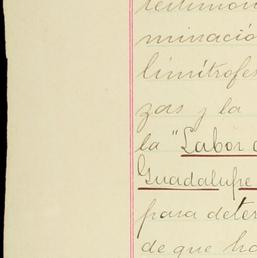 testimon
minació
limítrofes
zas y la
la "Labor d
Guadalupe
para deter
de que ha